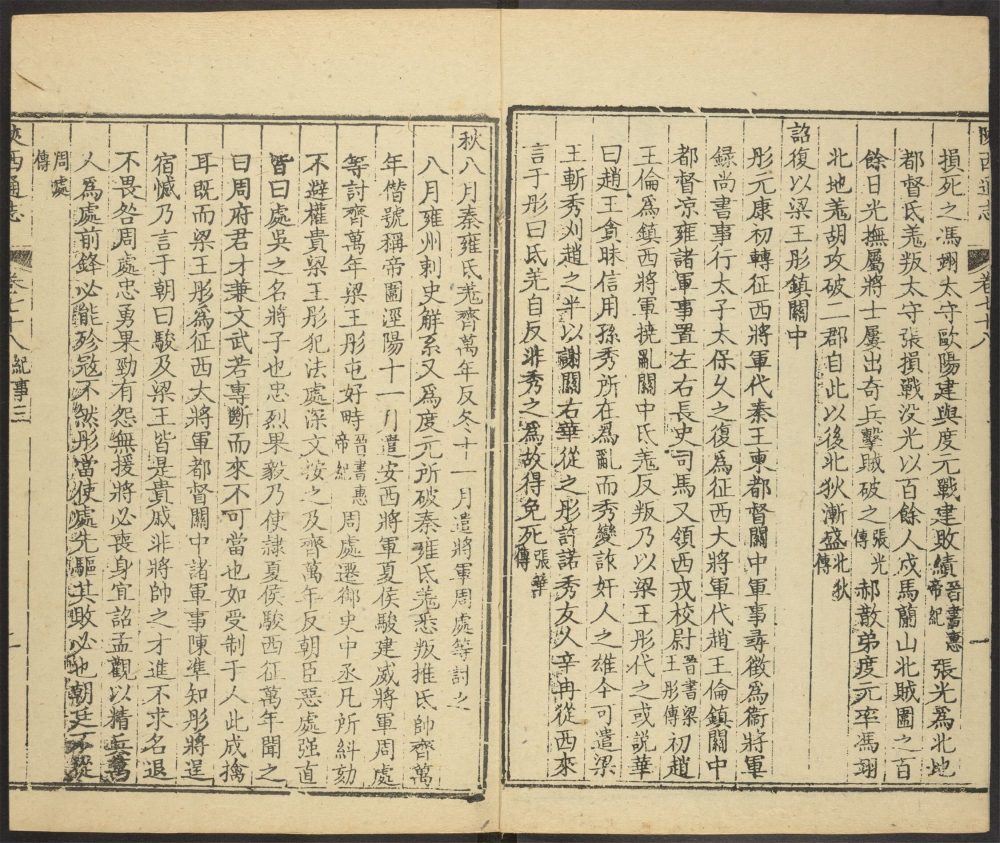 陝西通志 卷七十八 一
損死之馮翊太守歐陽建與度元戰建敗績晉書惠帝紀張光爲北地
都督氐羗叛太守張損戰没光以百餘人戍馬蘭山北賊圍之百
餘日光撫厲將士屢出奇兵擊賊破之張光傳郝散弟度元率馮翊
北地羗胡攻破二郡自此以後北狄漸盛北狄傳
詔復以梁王彤鎮關中
彤元康初轉征西將軍代秦王柬都督關中軍事尋徵爲衛將軍
録尚書事行太子太保久之復爲征西大將軍代趙王倫鎮關中
都督凉雍諸軍事置左右長史司馬又領西戎校尉晉書梁王彤傳初趙
王倫爲鎮西將軍撓亂關中氐羗反叛乃以梁王彤代之或説華
曰趙王貪昧信用孫秀所在爲亂而秀變詐奸人之雄今可遣梁
王斬秀刈趙之半以謝關右華從之彤許諾秀友人辛冉從西來
言于彤曰氐羌自反非秀之爲故得免死張華傳
秋八月秦雍氐羗齊萬年反冬十一月遣將軍周處等討之
八月雍州刺史解系又爲度元所破秦雍氐羗悉叛推氐帥齊萬
年僭號稱帝圍涇陽十一月遣安西將軍夏侯駿建威將軍周處
等討齊萬年梁王彤屯好畤晉書惠帝紀周處遷御史中丞凡所糾劾
不避權貴梁王彤犯法處深文按之及齊萬年反朝臣惡處强直
皆曰處吳之名將子也忠烈果毅乃使隸夏侯駿西征萬年聞之
曰周府君才兼文武若專斷而來不可當也如受制于人此成擒
耳既而梁王彤爲征西大將軍都督關中諸軍事陳準知彤將逞
宿憾乃言于朝曰駿及梁王皆是貴戚非將帥之才進不求名退
不畏咎周處忠勇果勁有怨無援將必喪身宜詔孟觀以精兵萬
人爲處前鋒必能殄冦不然彤當使處先驅其敗必也朝廷不從
周處傳
陝西通志 卷七十八 紀事三 一